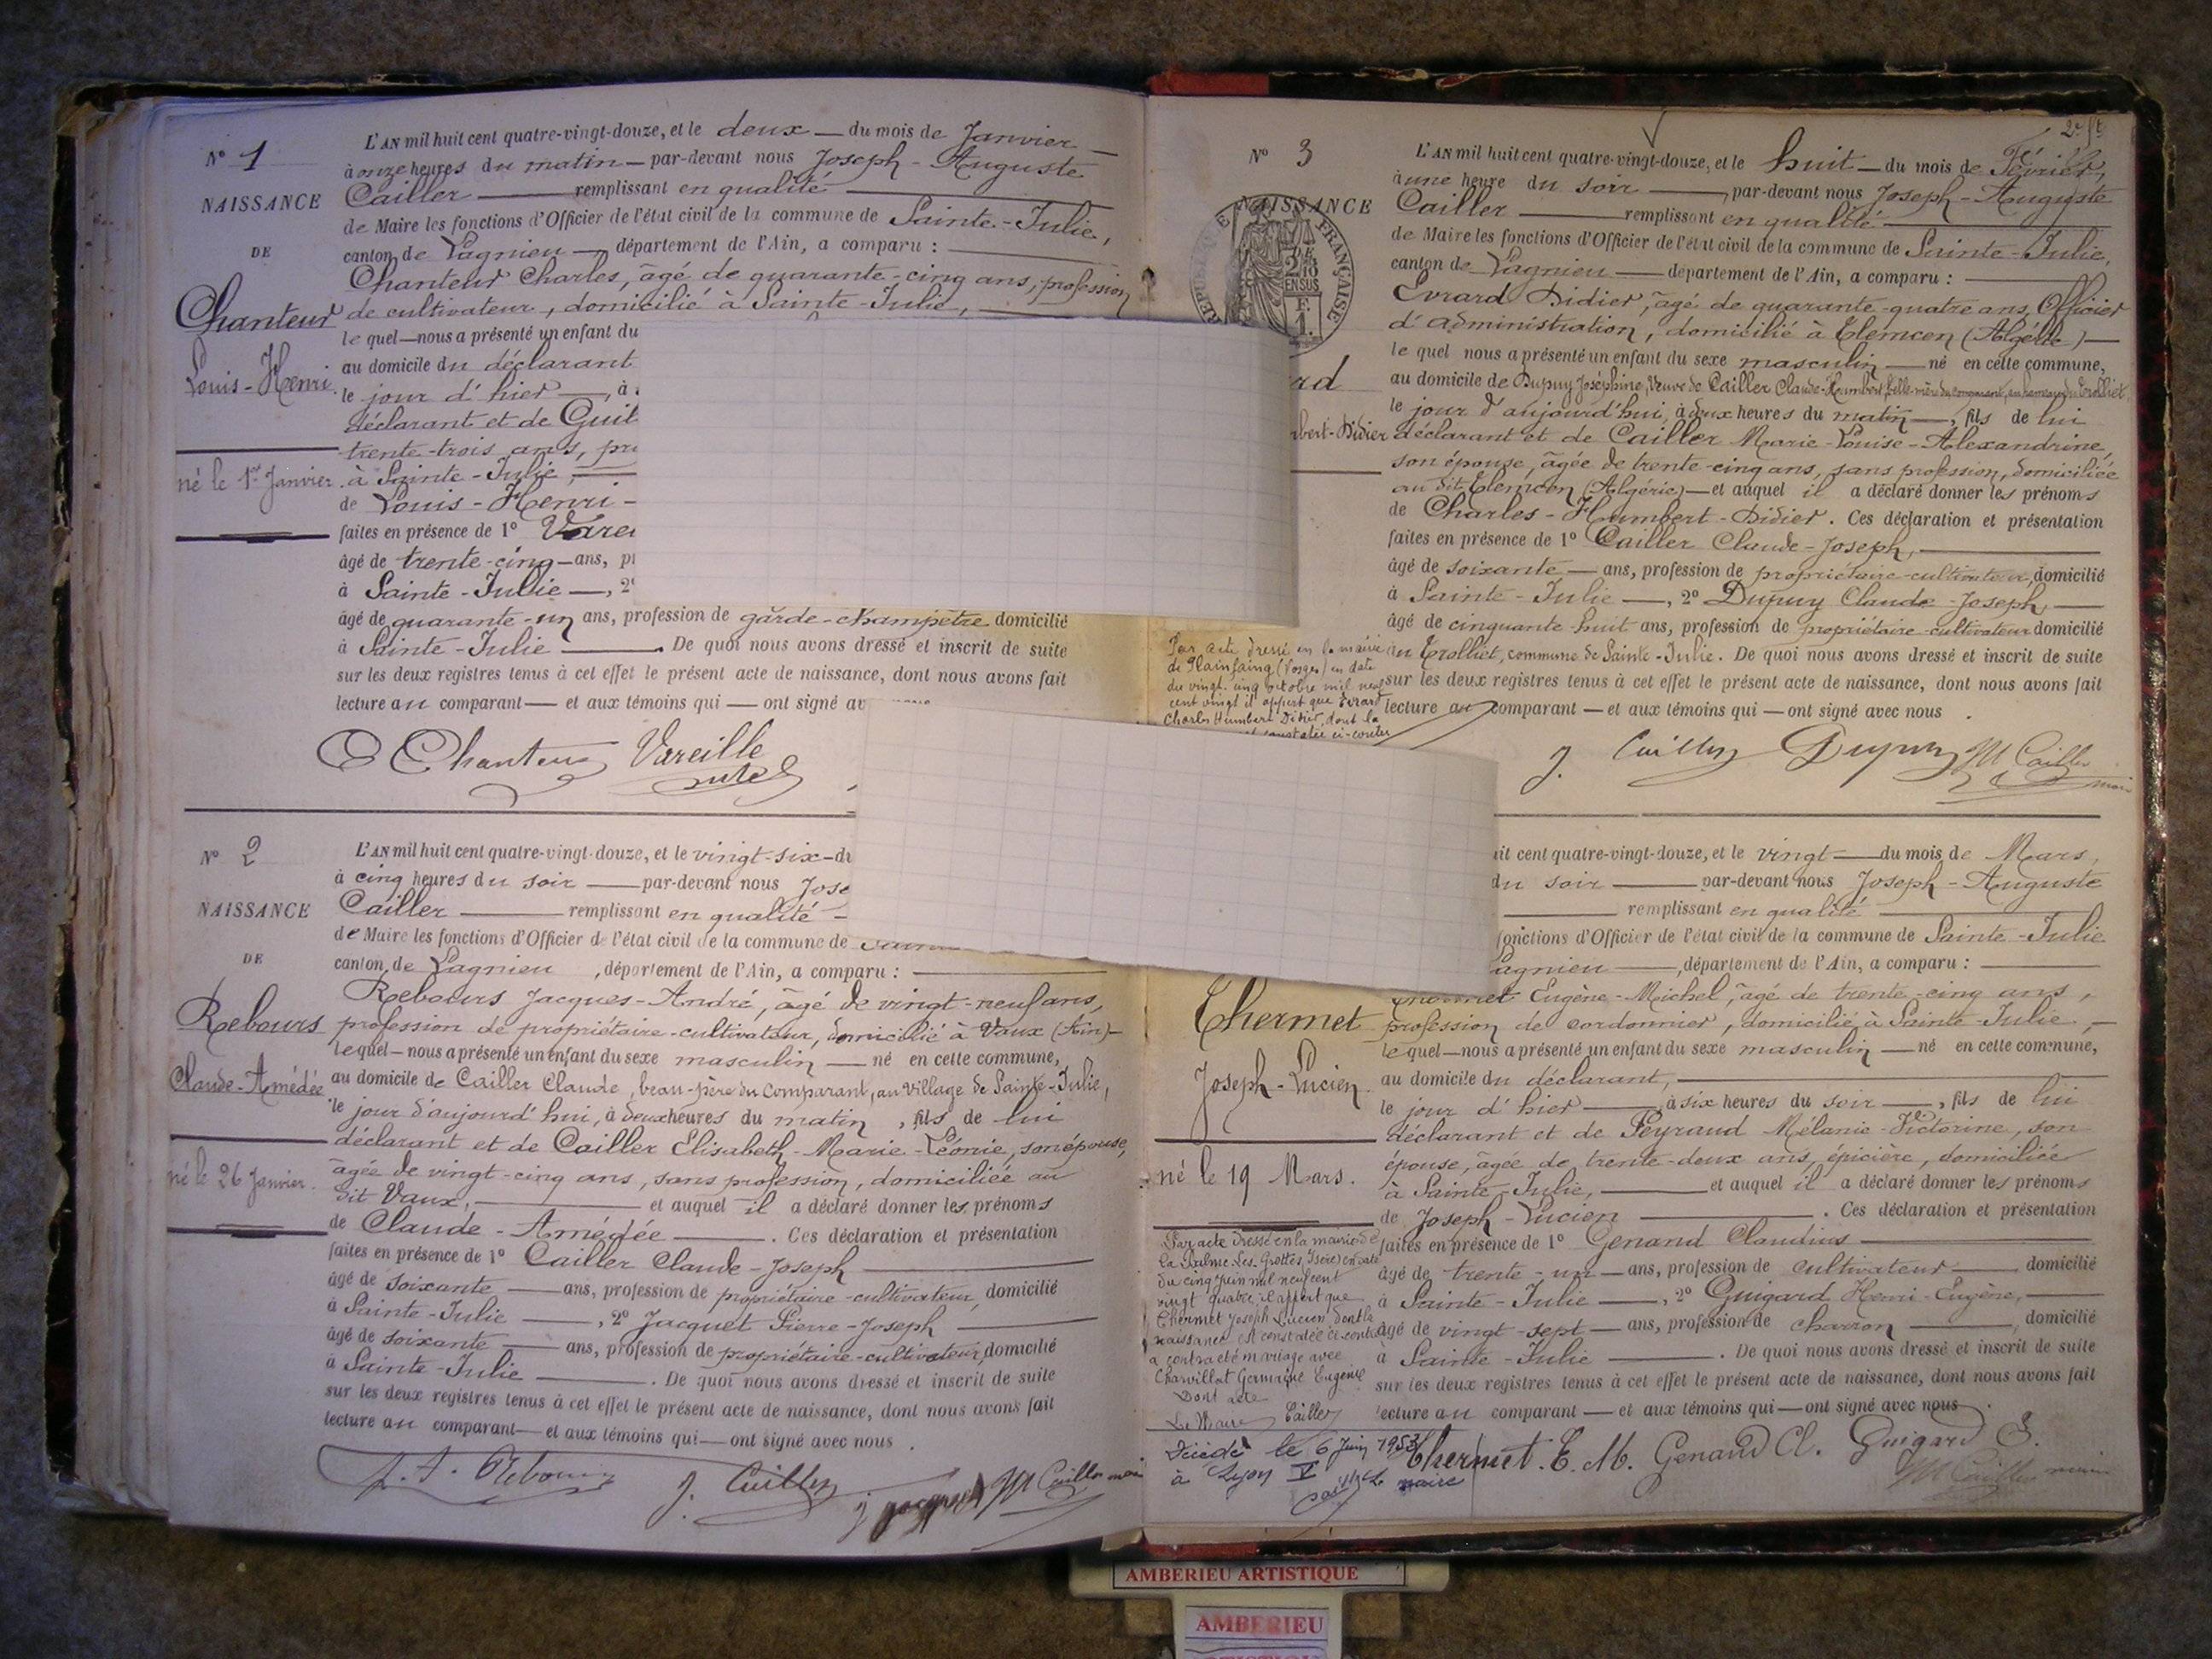 N° 1
NAISSANCE
DE
Chanteur
Louis-Henri.
né le 1er Janvier.
L'AN mil huit cent quatre-vingt-douze, et le deux — du mois de Janvier —
à onze heures du matin — par-devant nous Joseph-Auguste
Cailler — remplissant en qualité —
de Maire les fonctions d'Officier de l'état civil de la commune de Sainte-Julie,
canton de Lagnieu —, département de l'Ain, a comparu : —
Chanteur Charles, âgé de quarante-cinq ans, profession
de cultivateur, domicilié à Sainte-Julie, —
le quel — nous a présenté un enfant du
au domicile du déclarant
le jour d'hier —, à
déclarant et de Guil
trente-trois ans, pr
à Sainte-Julie, —
de Louis-Henri -
faites en présence de 1° Varei
âgé de trente-cinq — ans, p
à Sainte-Julie —, 2°
âgé de quarante-un ans, profession de garde-champêtre domicilié
à Sainte-Julie —. De quoi nous avons dressé et inscrit de suite
sur les deux registres tenus à cet effet le présent acte de naissance, dont nous avons fait
lecture au comparant — et aux témoins qui — ont signé av
C Chanteur Vareille
N° 2
NAISSANCE
DE
Rebours
Claude-Amédée
né le 26 Janvier.
L'AN mil huit cent quatre-vingt-douze, et le vingt-six — d
à cinq heures du soir — par-devant nous Jose
Cailler — remplissant en qualité -
de Maire les fonctions d'Officier de l'état civil de la commune de
canton de Lagnieu, département de l'Ain, a comparu : —
Rebours Jacques-André, âgé de vingt-neuf ans,
profession de propriétaire-cultivateur, domicilié à Vaux (Ain) —
le quel — nous a présenté un enfant du sexe masculin — né en cette commune,
au domicile de Cailler Claude, beau-père du comparant, au village de Sainte-Julie,
le jour d'aujourd'hui, à deux heures du matin, fils de lui
déclarant et de Cailler Elisabeth-Marie-Léonie, son épouse,
âgée de vingt-cinq ans, sans profession, domiciliée au
dit Vaux, — et auquel il a déclaré donner les prénoms
de Claude-Amédée —. Ces déclaration et présentation
faites en présence de 1° Cailler Claude-Joseph —
âgé de soixante — ans, profession de propriétaire-cultivateur, domicilié
à Sainte-Julie —, 2° Jacquet Pierre-Joseph —
âgé de soixante — ans, profession de propriétaire-cultivateur, domicilié
à Sainte-Julie —. De quoi nous avons dressé et inscrit de suite
sur les deux registres tenus à cet effet le présent acte de naissance, dont nous avons fait
lecture au comparant — et aux témoins qui — ont signé avec nous.
J. A. Rebours J. Cailler J Jacquet M Cailler maire
N° 3
NAISSANCE
RÉPUBLIQUE FRANÇAISE
2/10
EN SUS
F.
1.
rd
bert-Didier
L'AN mil huit cent quatre-vingt-douze, et le huit — du mois de Février,
à une heure du soir —, par-devant nous Joseph-Auguste
Cailler — remplissant en qualité —
de Maire les fonctions d'Officier de l'état civil de la commune de Sainte-Julie,
canton de Lagnieu — département de l'Ain, a comparu : —
Evrard Didier, âgé de quarante-quatre ans, Officier
d'administration, domicilié à Tlemcen (Algérie) —
le quel nous a présenté un enfant du sexe masculin — né en cette commune,
au domicile de Dupuy Joséphine, Veuve de Cailler Claude-Humbert, belle-mère du comparant, au hameau du Trolliet,
le jour d'aujourd'hui, à deux heures du matin —, fils de lui
déclarant et de Cailler Marie-Louise-Alexandrine,
son épouse, âgée de trente-cinq ans, sans profession, domiciliée
au dit Tlemcen (Algérie) — et auquel il a déclaré donner les prénoms
de Charles-Humbert-Didier. Ces déclaration et présentation
faites en présence de 1° Cailler Claude-Joseph, —
âgé de soixante — ans, profession de propriétaire-cultivateur, domicilié
à Sainte-Julie —, 2° Dupuy Claude-Joseph, —
âgé de cinquante-huit ans, profession de propriétaire-cultivateur domicilié
au Trolliet, commune de Sainte-Julie. De quoi nous avons dressé et inscrit de suite
sur les deux registres tenus à cet effet le présent acte de naissance, dont nous avons fait
lecture au comparant — et aux témoins qui — ont signé avec nous.
Par acte dressé en la mairie
de Plainfaing (Vosges) en date
du vingt-cinq octobre mil neuf
cent vingt il appert que Evrard
Charles Humbert Didier, dont la
constatée ci-contre
J. Cailler Dupuy M Cailler maire
it cent quatre-vingt-douze, et le vingt — du mois de Mars,
du soir — par-devant nous Joseph-Auguste
— remplissant en qualité —
fonctions d'Officier de l'état civil de la commune de Sainte-Julie
agnieu —, département de l'Ain, a comparu : —
Thermet Eugène-Michel, âgé de trente-cinq ans,
profession de cordonnier, domicilié à Sainte-Julie, —
le quel — nous a présenté un enfant du sexe masculin — né en cette commune,
au domicile du déclarant, —
le jour d'hier —, à six heures du soir —, fils de lui
déclarant et de Peyraud Mélanie-Victorine, son
épouse, âgée de trente-deux ans, épicière, domiciliée
à Sainte-Julie, — et auquel il a déclaré donner les prénoms
de Joseph-Lucien —. Ces déclaration et présentation
faites en présence de 1° Genand Claudius —
âgé de trente-un — ans, profession de cultivateur — domicilié
à Sainte-Julie —, 2° Guigard Henri-Eugène, —
âgé de vingt-sept — ans, profession de charron —, domicilié
à Sainte-Julie —. De quoi nous avons dressé et inscrit de suite
sur les deux registres tenus à cet effet le présent acte de naissance, dont nous avons fait
lecture au comparant — et aux témoins qui — ont signé avec nous.
Thermet
Joseph-Lucien.
né le 19 Mars.
Par acte dressé en la mairie de
La Balme-Les-Grottes (Isère) en date
du cinq juin mil neuf cent
vingt quatre il appert que
Thermet Joseph Lucien dont la
naissance est constatée ci-contre
a contracté mariage avec
Charvillat Germaine Eugénie
Dont acte
Le Maire Cailler
Décédé le 6 Juin 1953
à Lyon V
Le maire
Thermet. E. M. Genand Cl. Guigard E.
M Cailler maire
AMBERIEU ARTISTIQUE
AMBERIEU